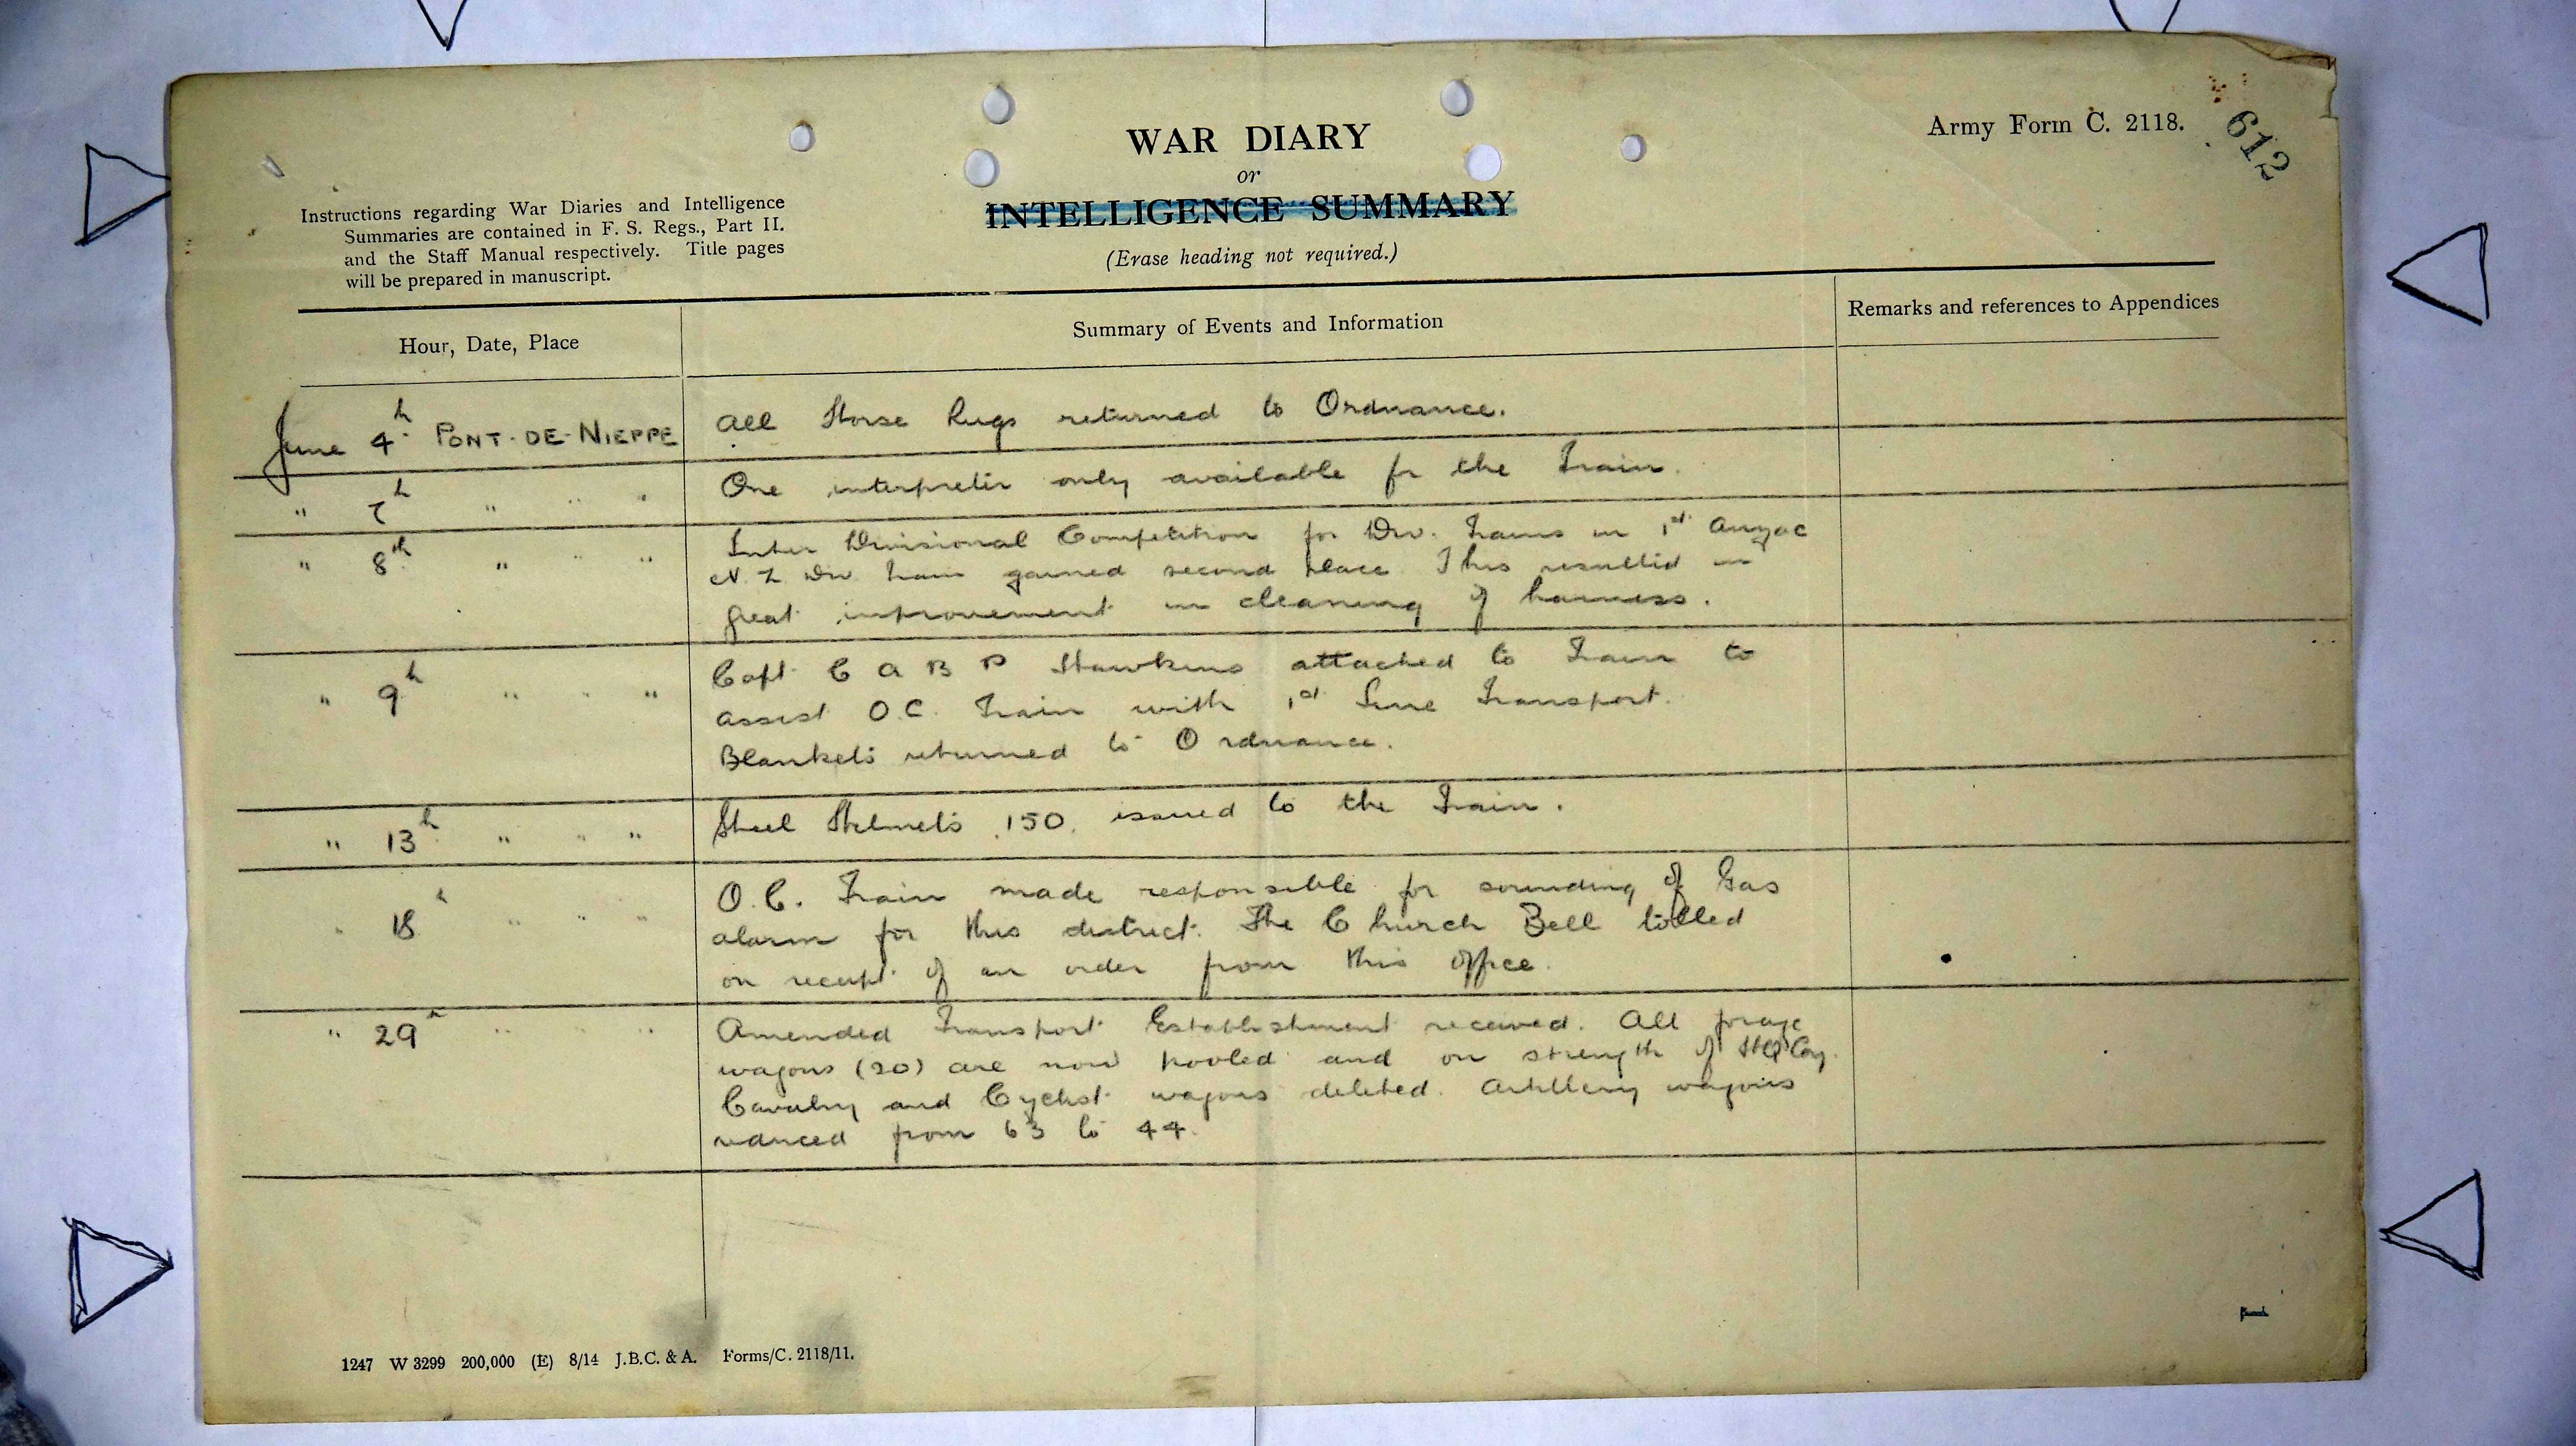 WAR DIARY
or
INTELLIGENCE SUMMARY
(Erase heading not required.)
Army Form C. 2118.
612
Instructions regarding War Diaries and Intelligence
Summaries are contained in F. S. Regs., Part II.
and the Staff Manual respectively. Title pages
will be prepared in manuscript.
Hour, Date, Place
Summary of Events and Information
Remarks and references to Appendices
June 4th PONT-DE-NIEPPE
All Horse Rugs returned to Ordnance.
" 7h " " "
One interpreter only available for the Train.
" 8th " " "
Inter Divisional Competition for Div. Trains in 1st Anzac
N.Z. Div Train gained second place. This resulted in
great improvement in cleaning of harness.
" 9h " " "
Capt C A B P Hawkins attached to Train to
assist O.C. Train with 1st Line Transport.
Blankets returned to Ordnance.
" 13h " " "
Steel Helmets 150. issued to the Train.
" 18h " " "
O.C. Train made responsible for sounding of Gas
alarm for this district. The Church Bell tolled
on receipt of an order from this office.
" 29h " " "
Amended Transport Establishment received. All forage
wagons (20) are now pooled and on strength of HQ Coy.
Cavalry and Cyclist wagons deleted. Artillery wagons
reduced from 63 to 44.
1247 W 3299 200,000 (E) 8/14 J.B.C. & A. Forms/C. 2118/11.
1